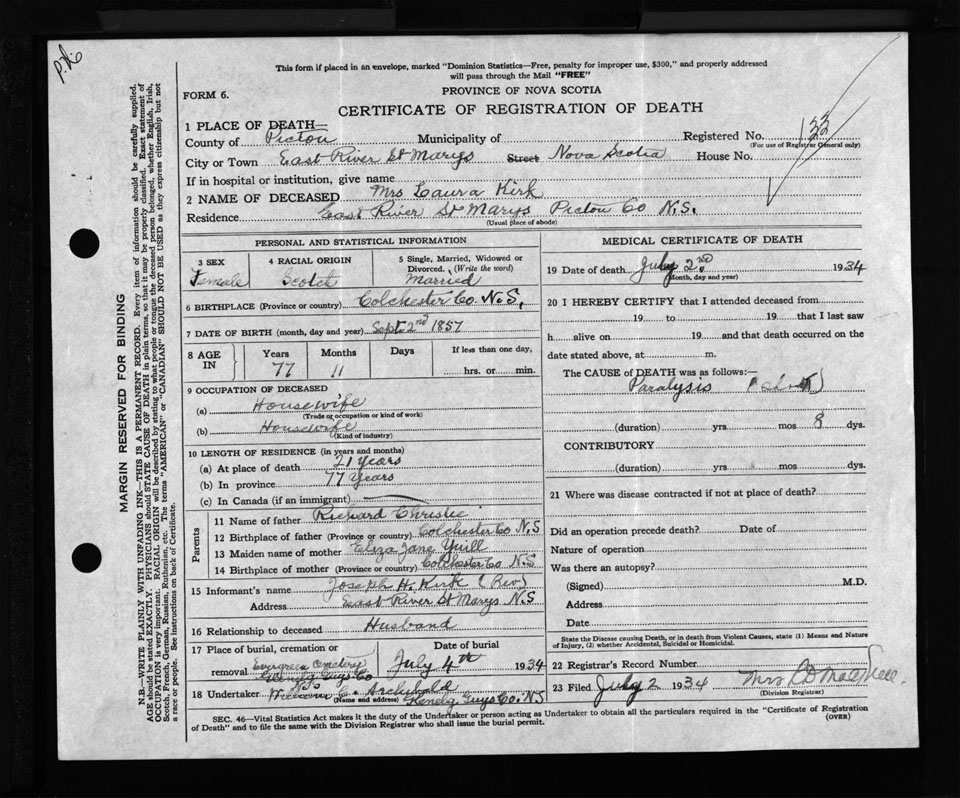 P.N.S.
This form if placed in an envelope, marked "Dominion Statistics—Free, penalty for improper use, $300," and properly addressed
will pass through the Mail "FREE"
PROVINCE OF NOVA SCOTIA
FORM 6.
CERTIFICATE OF REGISTRATION OF DEATH
1 PLACE OF DEATH—
County of Pictou Municipality of Registered No. 133
(For use of Registrar General only)
City or Town East River St Marys Street Nova Scotia House No.
If in hospital or institution, give name
2 NAME OF DECEASED Mrs Laura Kirk
Residence East River St Marys Pictou Co N.S.
(Usual place of abode)
PERSONAL AND STATISTICAL INFORMATION
3 SEX Female
4 RACIAL ORIGIN Scotch
5 Single, Married, Widowed or Divorced. (Write the word) Married
6 BIRTHPLACE (Province or country) Colchester Co. N.S.
7 DATE OF BIRTH (month, day and year) Sept 2nd 1857
8 AGE IN Years Months Days If less than one day,
77 11 hrs. or min.
9 OCCUPATION OF DECEASED
(a) Housewife
(Trade or occupation or kind of work)
(b) Housewife
(Kind of industry)
10 LENGTH OF RESIDENCE (in years and months)
(a) At place of death 21 Years
(b) In province 77 Years
(c) In Canada (if an immigrant)
Parents
11 Name of father Richard Christie
12 Birthplace of father (Province or country) Colchester Co N.S
13 Maiden name of mother Eliza Jane Yuill
14 Birthplace of mother (Province or country) Colchester Co N.S.
15 Informant's name Joseph H. Kirk (Rev)
Address East River St Marys N.S
16 Relationship to deceased Husband
17 Place of burial, cremation or removal Evergreen Cemetery Guys Co N.S
Date of burial July 4th 1934
18 Undertaker William C. Archibald
(Name and address) Guys Co. N.S
MEDICAL CERTIFICATE OF DEATH
19 Date of death July 2nd 1934
(Month, day and year)
20 I HEREBY CERTIFY that I attended deceased from
19 to 19 that I last saw
h alive on 19 and that death occurred on the
date stated above, at m.
The CAUSE of DEATH was as follows:—
Paralysis
(duration) yrs mos 8 dys.
CONTRIBUTORY
(duration) yrs mos dys.
21 Where was disease contracted if not at place of death?
Did an operation precede death? Date of
Nature of operation
Was there an autopsy?
(Signed) M.D.
Address
Date
State the Disease causing Death, or in death from Violent Causes, state (1) Means and Nature
of Injury, (2) whether Accidental, Suicidal or Homicidal.
22 Registrar's Record Number
23 Filed July 2 1934 Mrs
(Division Registrar)
SEC. 46—Vital Statistics Act makes it the duty of the Undertaker or person acting as Undertaker to obtain all the particulars required in the "Certificate of Registration
of Death" and to file the same with the Division Registrar who shall issue the burial permit. (OVER)
MARGIN RESERVED FOR BINDING
N.B.—WRITE PLAINLY WITH UNFADING INK—THIS IS A PERMANENT RECORD. Every item of information should be carefully supplied.
AGE should be stated EXACTLY. PHYSICIANS should STATE CAUSE OF DEATH in plain terms, so that it may be properly classified. Exact statement of
OCCUPATION is very important. RACIAL ORIGIN will be described by stating to what people or tongue the deceased person belonged, whether English, Irish,
Scotch, French, German, Russian, Ruthenian, etc. The terms "AMERICAN" or "CANADIAN" SHOULD NOT BE USED as they express citizenship but not
a race or people. See instructions on back of Certificate.